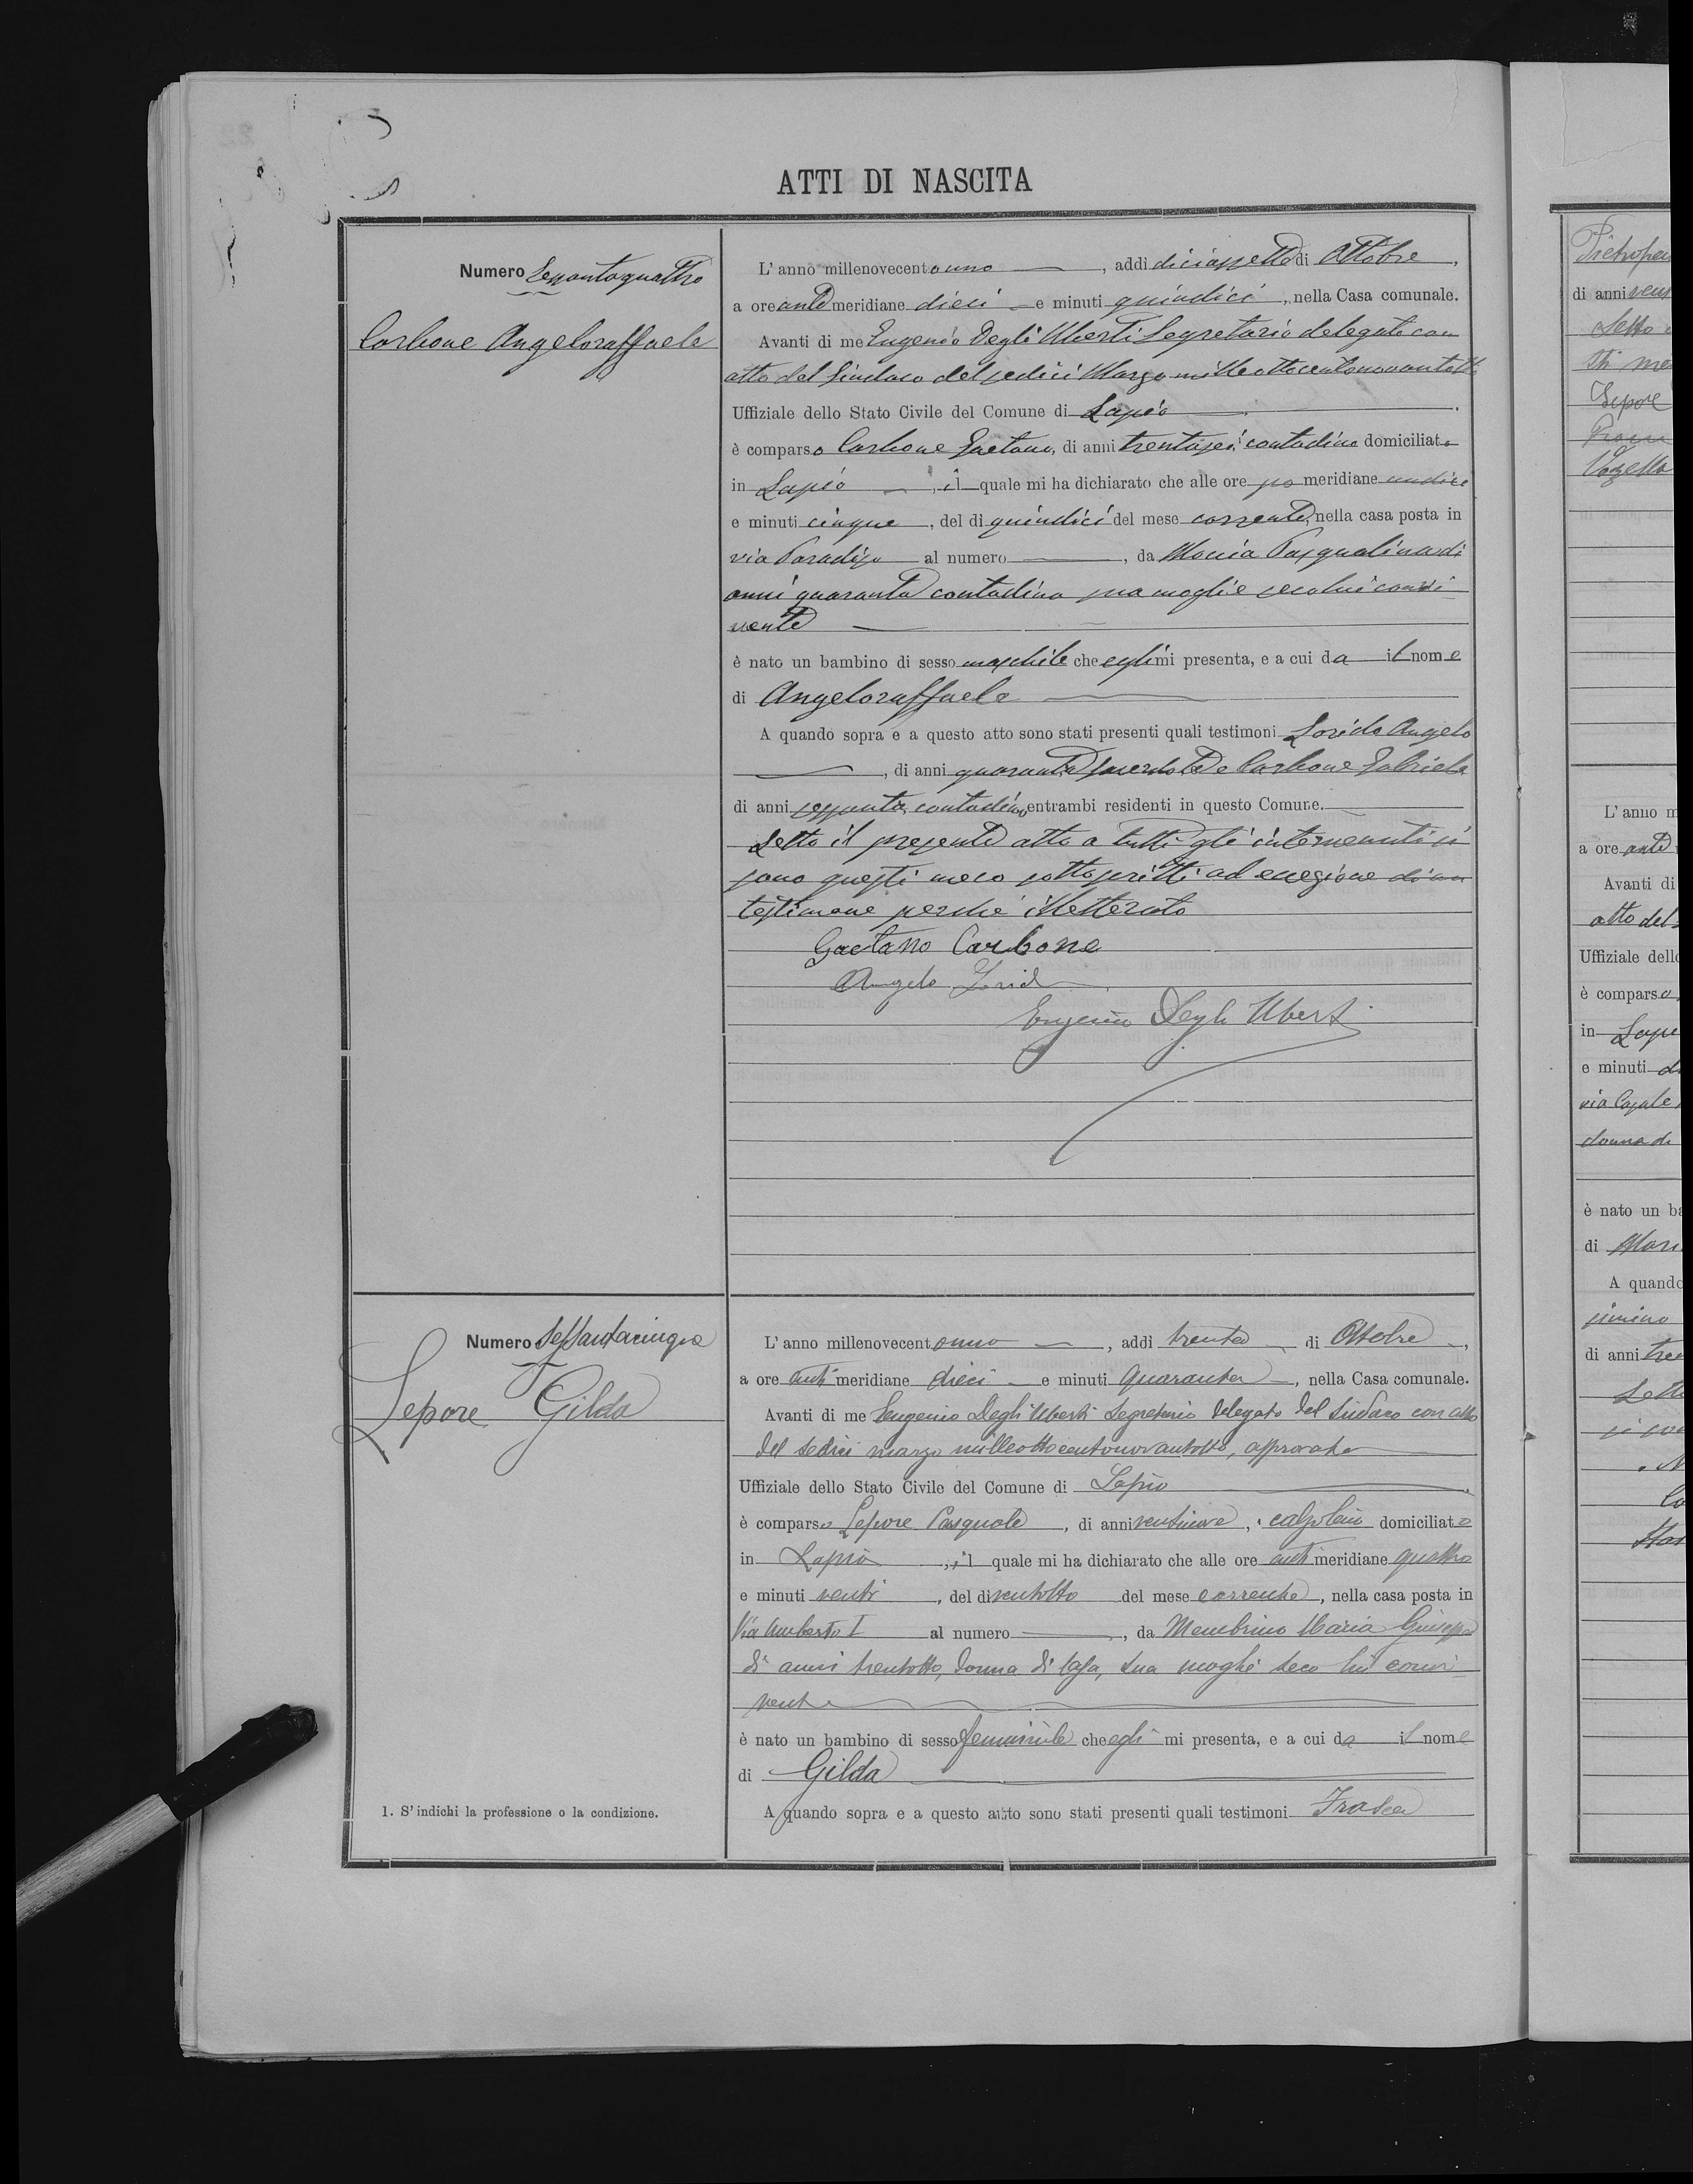 ATTI DI NASCITA
Numero Sessantaquattro
Carbone Angeloraffaele
L'anno millenovecentouno, addì diciassette di Ottobre,
a ore antemeridiane dieci e minuti quindici, nella Casa comunale.
Avanti di me Eugenio Degli Uberti Segretario delegato con
atto del Sindaco del sedici Marzo milleottocentonovantotto
Uffiziale dello Stato Civile del Comune di Lapio.
è comparso Carbone Gaetano, di anni trentasei, contadino domiciliato
in Lapio, il quale mi ha dichiarato che alle ore pomeridiane undici
e minuti cinque, del dì quindici del mese corrente, nella casa posta in
via Paradiso al numero, da Pasqualina di
anni quaranta contadina sua moglie seco lui convi
vente
è nato un bambino di sesso maschile che egli mi presenta, e a cui da il nome
di Angeloraffaele
A quando sopra e a questo atto sono stati presenti quali testimoni Angelo
, di anni quaranta, sacerdote e Carbone Gabriele
di anni sessanta, contadino, entrambi residenti in questo Comune.
Letto il presente atto a tutti gli intervenuti si
sono questi meco sottoscritti ad eccezione di un
testimone perchè illetterato
Gaetano Carbone
Angelo
Eugenio Degli Uberti
Numero Sessantacinque
Lepore Gilda
L'anno millenovecentouno, addì trenta di Ottobre,
a ore antimeridiane dieci e minuti quaranta, nella Casa comunale.
Avanti di me Eugenio Degli Uberti Segretario delegato dal Sindaco con atto
del sedici marzo milleottocentonovantotto, approvato
Uffiziale dello Stato Civile del Comune di Lapio.
è comparso Lepore Pasquale, di anni ventinove, calzolaio domiciliato
in Lapio, il quale mi ha dichiarato che alle ore antimeridiane quattro
e minuti venti, del dì ventotto del mese corrente, nella casa posta in
Via Umberto I al numero, da Membrino Maria Giuseppa
di anni trentotto, donna di casa, sua moglie seco lui convi
vente
è nato un bambino di sesso femminile che egli mi presenta, e a cui da il nome
di Gilda
A quando sopra e a questo atto sono stati presenti quali testimoni
1. S'indichi la professione o la condizione.
di anni
Letto
Lepore
L'anno
a ore ante
Avanti di
atto del
Uffiziale dello
è comparso
in Lapio
e minuti
via Casale
donna di
è nato un
di
A quando
di anni